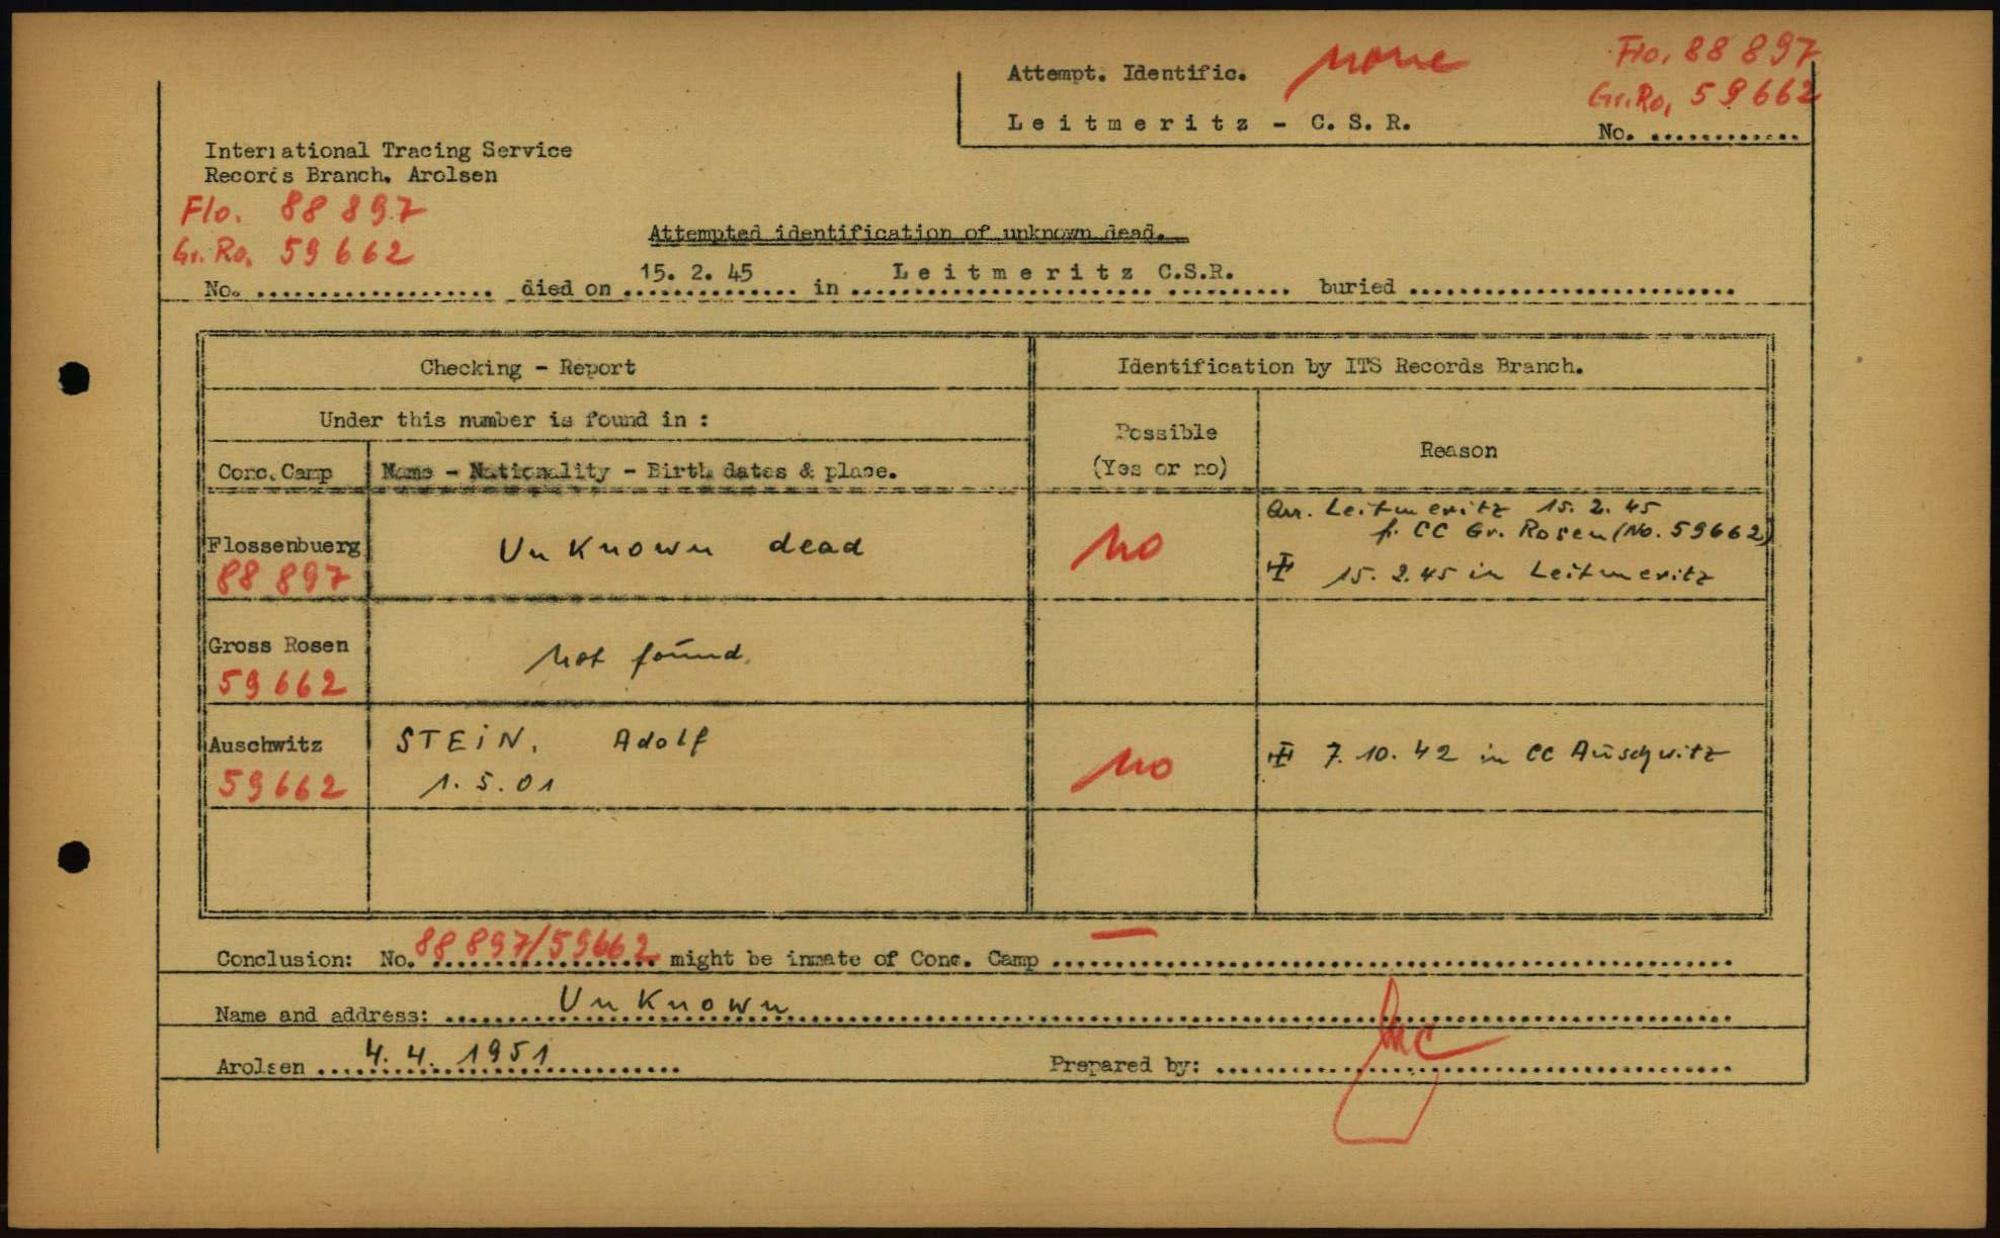 Attempt. Identific. none
Flo. 88 897
Gr. Ro. 59662
Leitmeritz - C. S. R.
No. .............
International Tracing Service
Records Branch. Arolsen
Flo. 88 897
Gr. Ro. 59662
Attempted identification of unknown dead.
No. .................... died on 15. 2. 45 in Leitmeritz C.S.R. buried ............................
Checking - Report
Identification by ITS Records Branch.
Under this number is found in :
Possible
(Yes or no)
Reason
Conc. Camp
Name - Nationality - Birth dates & place.
Flossenbuerg
88 897
Unknown dead
no
arr. Leitmeritz 15. 2. 45
fr. CC Gr. Rosen (No. 59662)
15. 2. 45 in Leitmeritz
Gross Rosen
59662
not found.
Auschwitz
59662
STEiN, Adolf
1. 5. 01
no
7. 10. 42 in CC Auschwitz
Conclusion: No. 88 897/59662 might be inmate of Conc. Camp —
Name and address: Unknown
Arolsen 4. 4. 1951
Prepared by: ............................